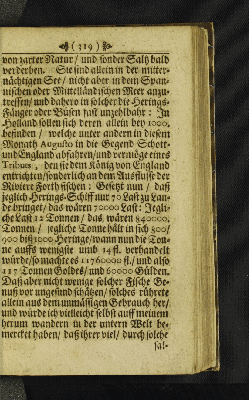 (319)
von zarter Natur / und sonder Saltz bald
verderben. Sie sind allein in der mitter-
nächtigen See / nicht aber in dem Spa-
nischen oder Mittelländischen Meer anzu-
treffen / und dahero in solcher die Herings-
Fänger oder Büsen fast unzehlbahr: In
Holland sollen sich deren allein bey 1000.
befinden / welche unter andern in diesem
Monath Augusto in die Gegend Schott-
und England abfahren / und vermöge eines
Tributs, den sie dem König von England
entrichten / sonderlich an dem Ausflusse der
Riviere Forth fischen: Gesetzt nun / daß
jeglich Herings-Schiff nur 70 Last zu Lan-
de bringet / das wären 70000 Last: Jegli-
che Last 12 Tonnen / das wären 840000.
Tonnen / jegliche Tonne hält in sich 800/
900 biß 1000 Heringe / wann nun die Ton-
ne auffs wenigste umb 14 fl. verhandelt
würde / so machte es 11760000 fl. / und also
117 Tonnen Goldes / und 60000 Gülden.
Daß aber nicht wenige solcher Fische Ge-
nuß vor ungesund schätzen / solches rührete
allein aus dem unmässigen Gebrauch her /
und würde ich vielleicht selbst auff meinem
herum wandern in der untern Welt be-
mercket haben / daß ihrer viel / durch solche